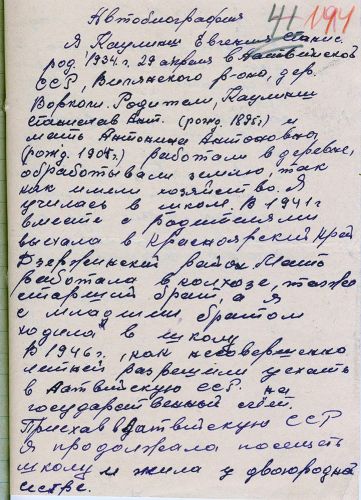 Автобиография
41 194
Я Каулинш Евгения Станис.
род. 1934 г. 29 апреля в Латвийской
ССР, Вилянского р-она, дер.
Воркали. Родители, Каулинш
Станислав Ант. (рожд. 1895 г.) и
мать Антонина Антоновна
(рожд. 1904 г.) работали в деревне,
обработывали землю, так
как имели хозяйство. Я
училась в школе. В 1941 г
вместе с родителями
выслана в Красноярский Край
Дзержинский район. Мать
работала в колхозе, также
старший брат, а я
с младшим братом
ходила в школу
В 1946 г., как несовершенно
летней разрешили уехать
в Латвийскую ССР на
государственный счет.
Приехав в Латвийскую ССР
Я продолжала посещать
школу и жила у двоюродной
сестре.